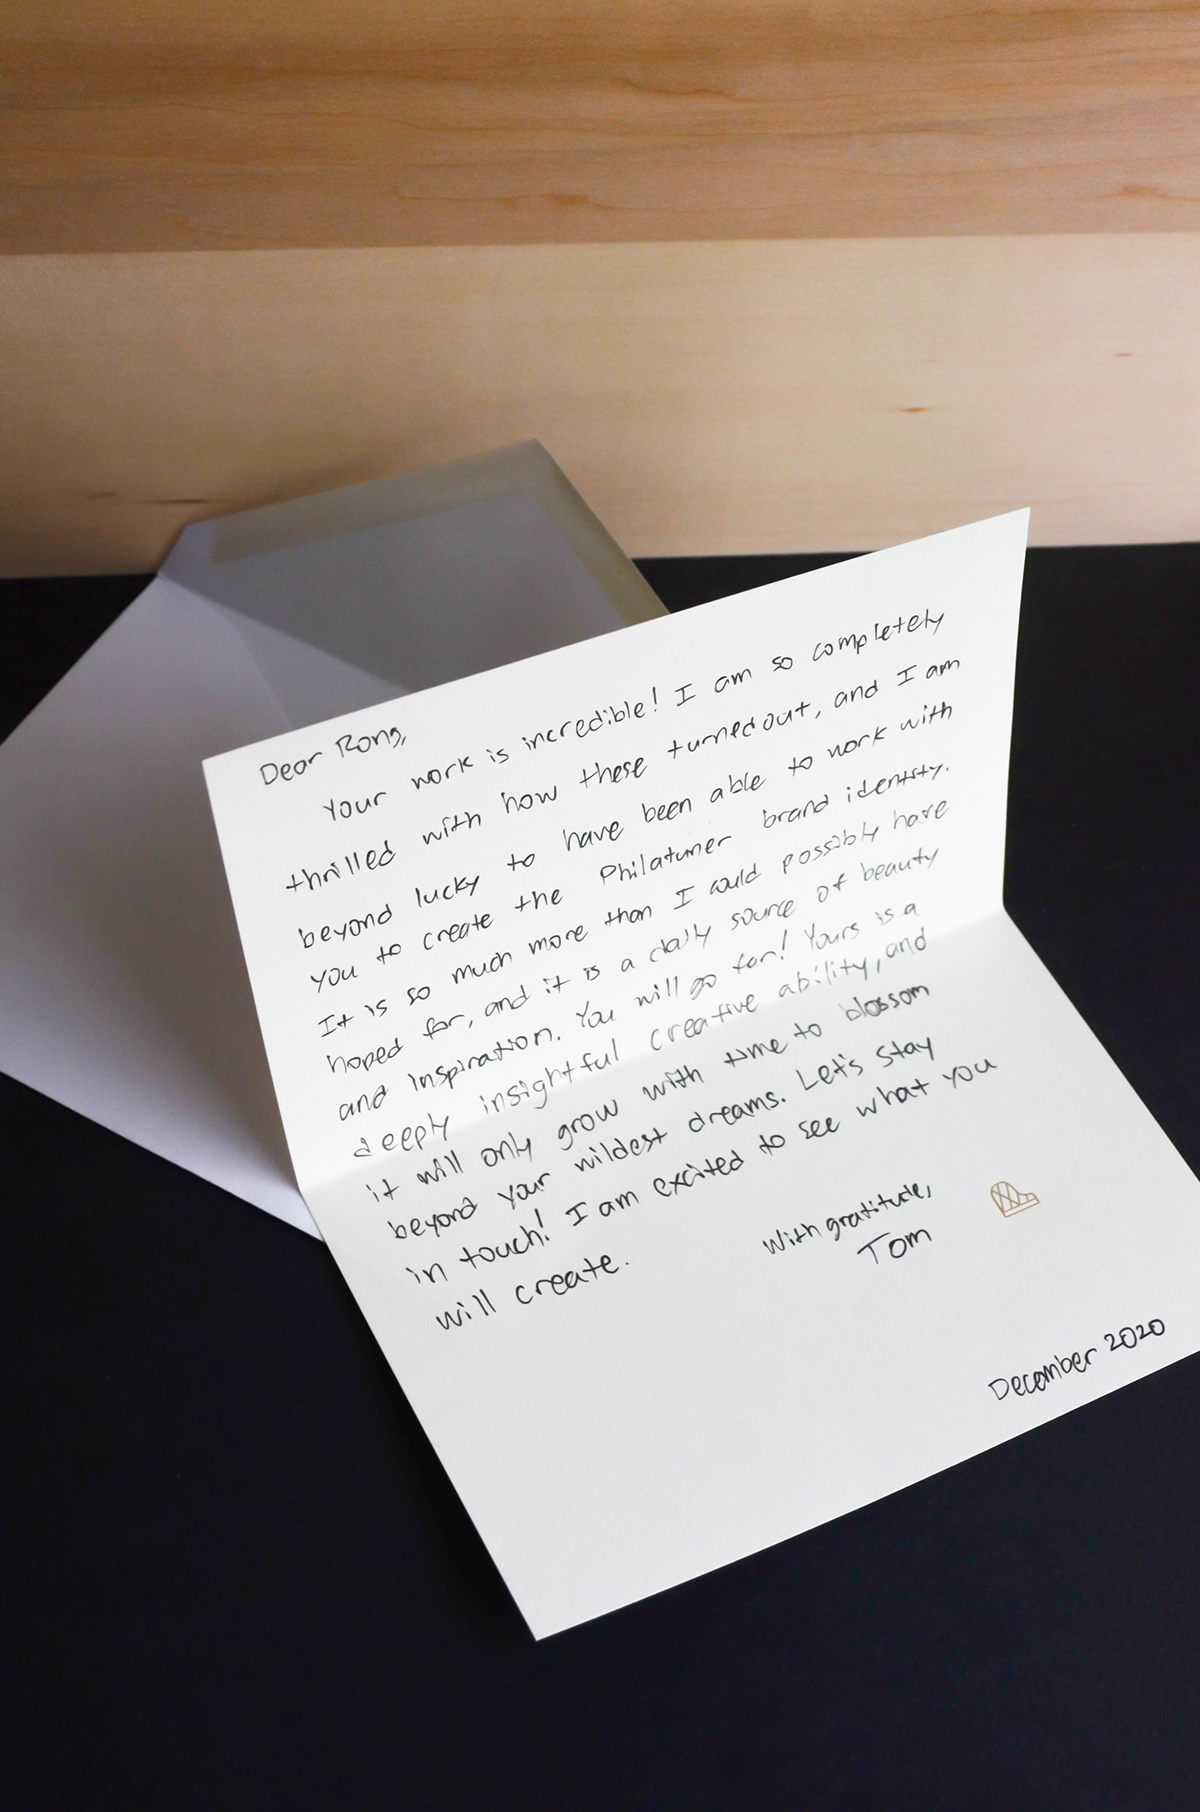 Dear Rong,
Your work is incredible! I am so completely
thrilled with how these turned out, and I am
beyond lucky to have been able to work with
you to create the Philatuner brand identity.
It is so much more than I could possibly have
hoped for, and it is a daily source of beauty
and inspiration. You will go far! Yours is a
deeply insightful creative ability, and
it will only grow with time to blossom
beyond your wildest dreams. Let's stay
in touch! I am excited to see what you
will create.
With gratitude,
Tom
December 2020